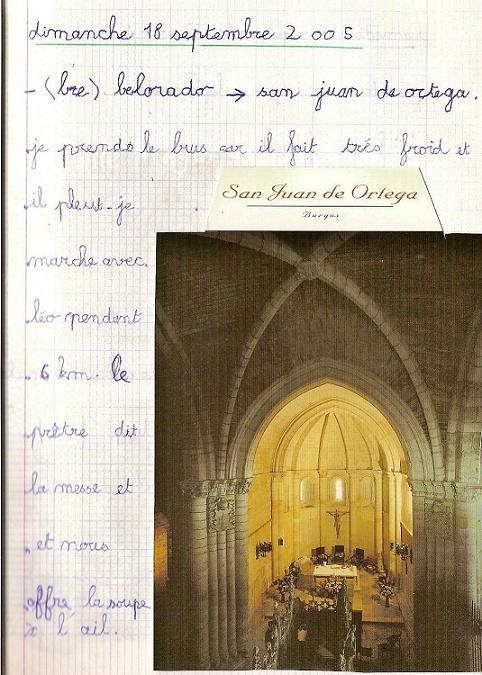 dimanche 18 septembre 2005
- (bre) belorado → san juan de ortega.
je prends le bus car il fait trés froid et
il pleut. je
San Juan de Ortega
Burgos
marche avec.
léo pendent
6 km. le
prêtre dit
la messe et
et nous
offre la soupe
à l'ail.